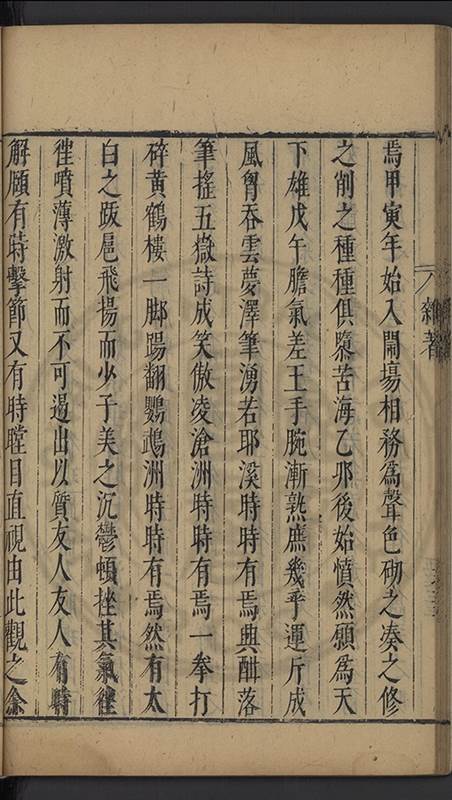 焉甲寅年始入鬧塲相務爲聲色砌之凑之修
之削之種種俱墮苦海乙夘後始憤然願爲天
下雄戊午膽氣差王手腕漸熟庶幾乎運斤成
風胷吞雲夢澤筆湧若耶溪時時有焉興酣落
筆搖五嶽詩成笑傲凌滄洲時時有焉一拳打
碎黃鶴樓一脚踢翻鸚鵡洲時時有焉然有太
白之跋扈飛揚而少子美之沉鬱頓挫其氣徃
徃噴薄激射而不可遏出以質友人友人有時
解頤有時擊節又有時瞠目直視由此觀之余
雜著